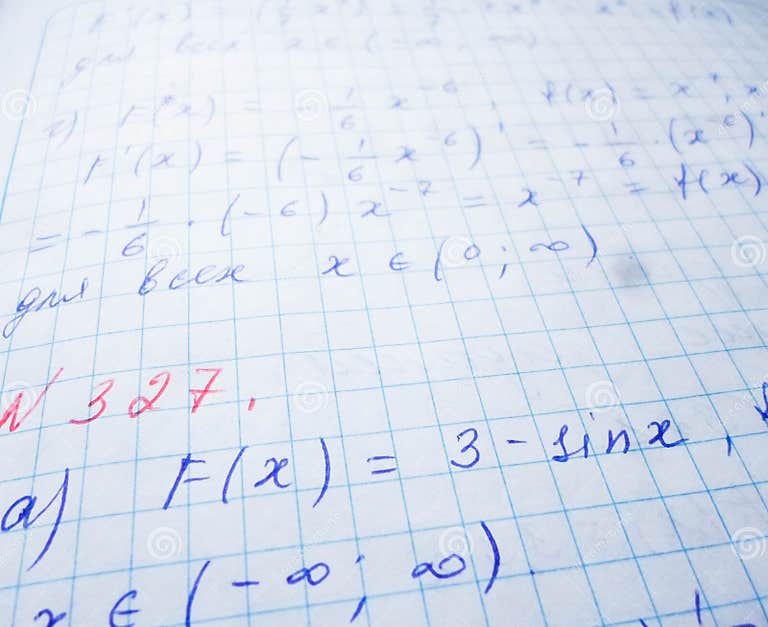 для всех x ∈ (-∞; ∞)
г) F(x) = -1/6 x⁻⁶, f(x) = x⁻⁷, x
F'(x) = (-1/6 x⁻⁶)' = -1/6 · (x⁻⁶)'
= -1/6 · (-6) x⁻⁷ = x⁻⁷ = f(x)
для всех x ∈ (0; ∞)
N 327.
а) F(x) = 3 - sinx,
x ∈ (-∞; ∞).